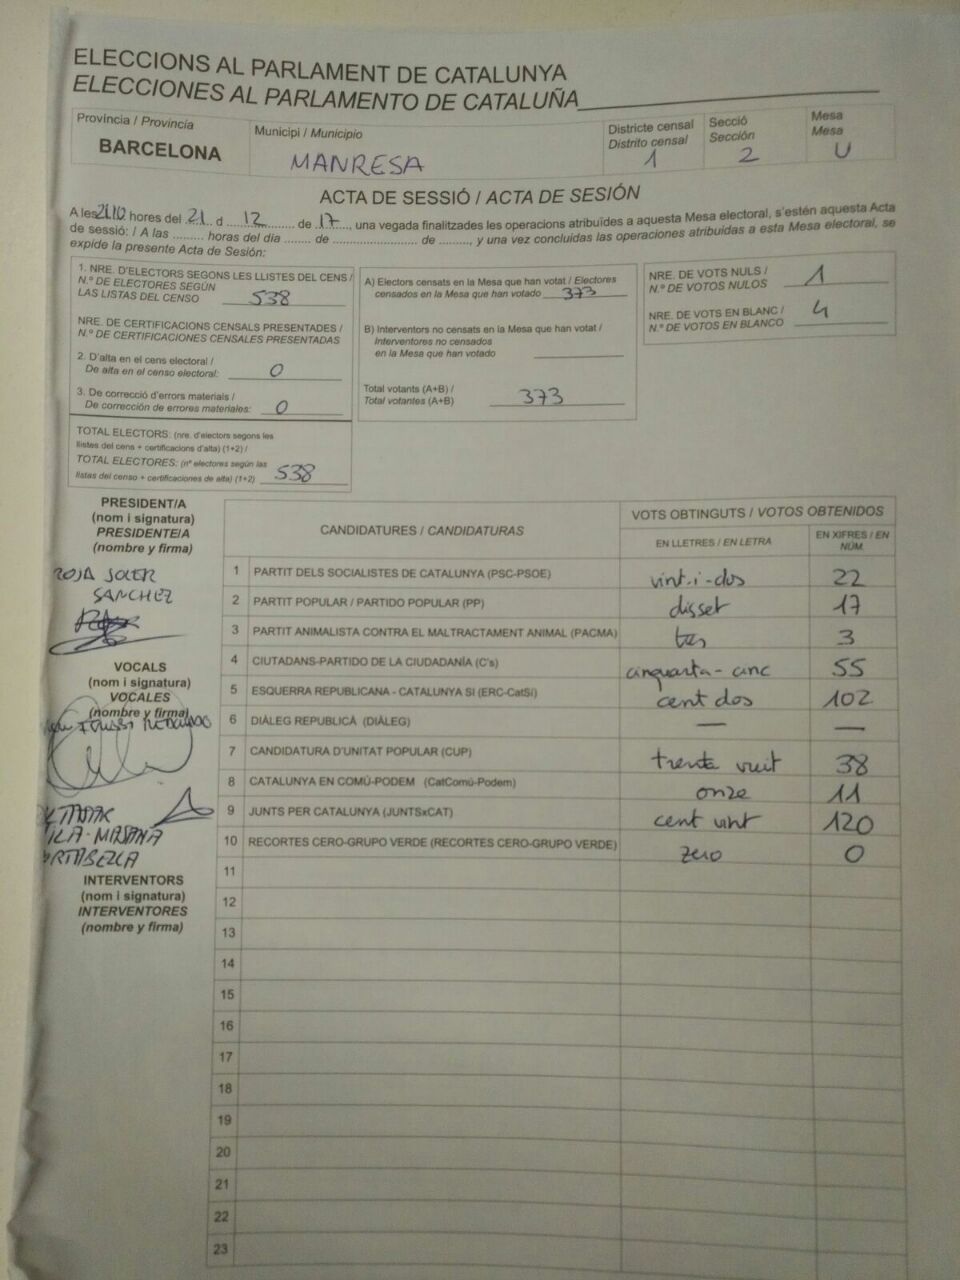 ELECCIONS AL PARLAMENT DE CATALUNYA
ELECCIONES AL PARLAMENTO DE CATALUÑA
Província / Provincia
BARCELONA
Municipi / Municipio
MANRESA
Districte censal
Distrito censal
1
Secció
Sección
2
Mesa
Mesa
U
ACTA DE SESSIÓ / ACTA DE SESIÓN
A les hores del 21 d 12 de 17, una vegada finalitzades les operacions atribuïdes a aquesta Mesa electoral, s'estén aquesta Acta
de sessió: / A las ......... horas del día ....... de ...................... de ........, y una vez concluidas las operaciones atribuidas a esta Mesa electoral, se
expide la presente Acta de Sesión:
1. NRE. D'ELECTORS SEGONS LES LLISTES DEL CENS /
N.º DE ELECTORES SEGÚN
LAS LISTAS DEL CENSO 538
NRE. DE CERTIFICACIONS CENSALS PRESENTADES /
N.º DE CERTIFICACIONES CENSALES PRESENTADAS
2. D'alta en el cens electoral /
De alta en el censo electoral: 0
3. De correcció d'errors materials /
De corrección de errores materiales: 0
TOTAL ELECTORS: (nre. d'electors segons les
llistes del cens + certificacions d'alta) (1+2) /
TOTAL ELECTORES: (nº electores según las
listas del censo + certificaciones de alta) (1+2) 538
A) Electors censats en la Mesa que han votat / Electores
censados en la Mesa que han votado 373
B) Interventors no censats en la Mesa que han votat /
Interventores no censados
en la Mesa que han votado
Total votants (A+B) /
Total votantes (A+B) 373
NRE. DE VOTS NULS /
N.º DE VOTOS NULOS 1
NRE. DE VOTS EN BLANC /
N.º DE VOTOS EN BLANCO 4
PRESIDENT/A
(nom i signatura)
PRESIDENTE/A
(nombre y firma)
SOLER
SANCHEZ
VOCALS
(nom i signatura)
VOCALES
(nombre y firma)
INTERVENTORS
(nom i signatura)
INTERVENTORES
(nombre y firma)
CANDIDATURES / CANDIDATURAS
VOTS OBTINGUTS / VOTOS OBTENIDOS
EN LLETRES / EN LETRA
EN XIFRES / EN
NÚM.
1 PARTIT DELS SOCIALISTES DE CATALUNYA (PSC-PSOE) vint-i-dos 22
2 PARTIT POPULAR / PARTIDO POPULAR (PP) disset 17
3 PARTIT ANIMALISTA CONTRA EL MALTRACTAMENT ANIMAL (PACMA) tres 3
4 CIUTADANS-PARTIDO DE LA CIUDADANÍA (C's) cinquanta-cinc 55
5 ESQUERRA REPUBLICANA - CATALUNYA SÍ (ERC-CatSí) cent dos 102
6 DIÀLEG REPUBLICÀ (DIÀLEG) — —
7 CANDIDATURA D'UNITAT POPULAR (CUP) trenta vuit 38
8 CATALUNYA EN COMÚ-PODEM (CatComú-Podem) onze 11
9 JUNTS PER CATALUNYA (JUNTSxCAT) cent vint 120
10 RECORTES CERO-GRUPO VERDE (RECORTES CERO-GRUPO VERDE) zero 0
11
12
13
14
15
16
17
18
19
20
21
22
23